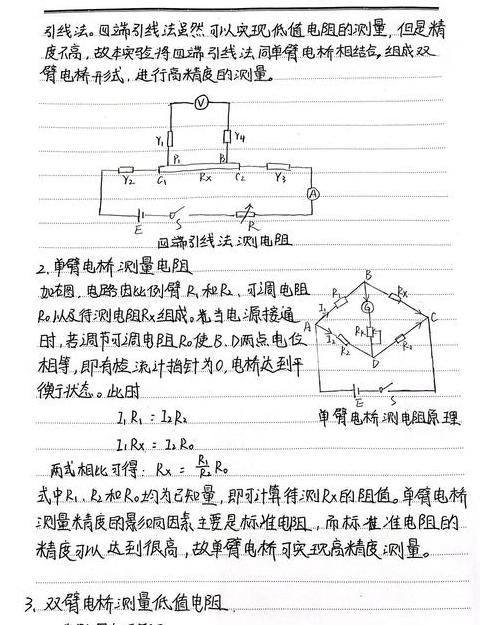 引线法。四端引线法虽然可以实现低值电阻的测量，但是精
度不高，故本实验将四端引线法同单臂电桥相结合，组成双
臂电桥形式，进行高精度的测量。
V
r₁
P₁
P₂
r₄
r₂
C₁
Rx
C₂
r₃
A
E
S
R
四端引线法测电阻
2.单臂电桥测量电阻
如右图，电路由比例臂R₁和R₂、可调电阻
R₀以及待测电阻Rx组成。当电源接通
时，若调节可调电阻R₀使B、D两点电位
相等，即有检流计指针为0，电桥达到平
衡状态。此时
B
R₁
Rx
I₁
G
A
C
I₂
R₂
R₀
D
E
S
单臂电桥测电阻原理
I₁R₁ = I₂R₂
I₁Rx = I₂R₀
两式相比可得：Rx = R₁/R₂ R₀
式中R₁、R₂和R₀均为已知量，即可计算待测Rx的阻值。单臂电桥
测量精度的影响因素主要是标准电阻，而标准准电阻的
精度可以达到很高，故单臂电桥可实现高精度测量。
3、双臂电桥测量低值电阻